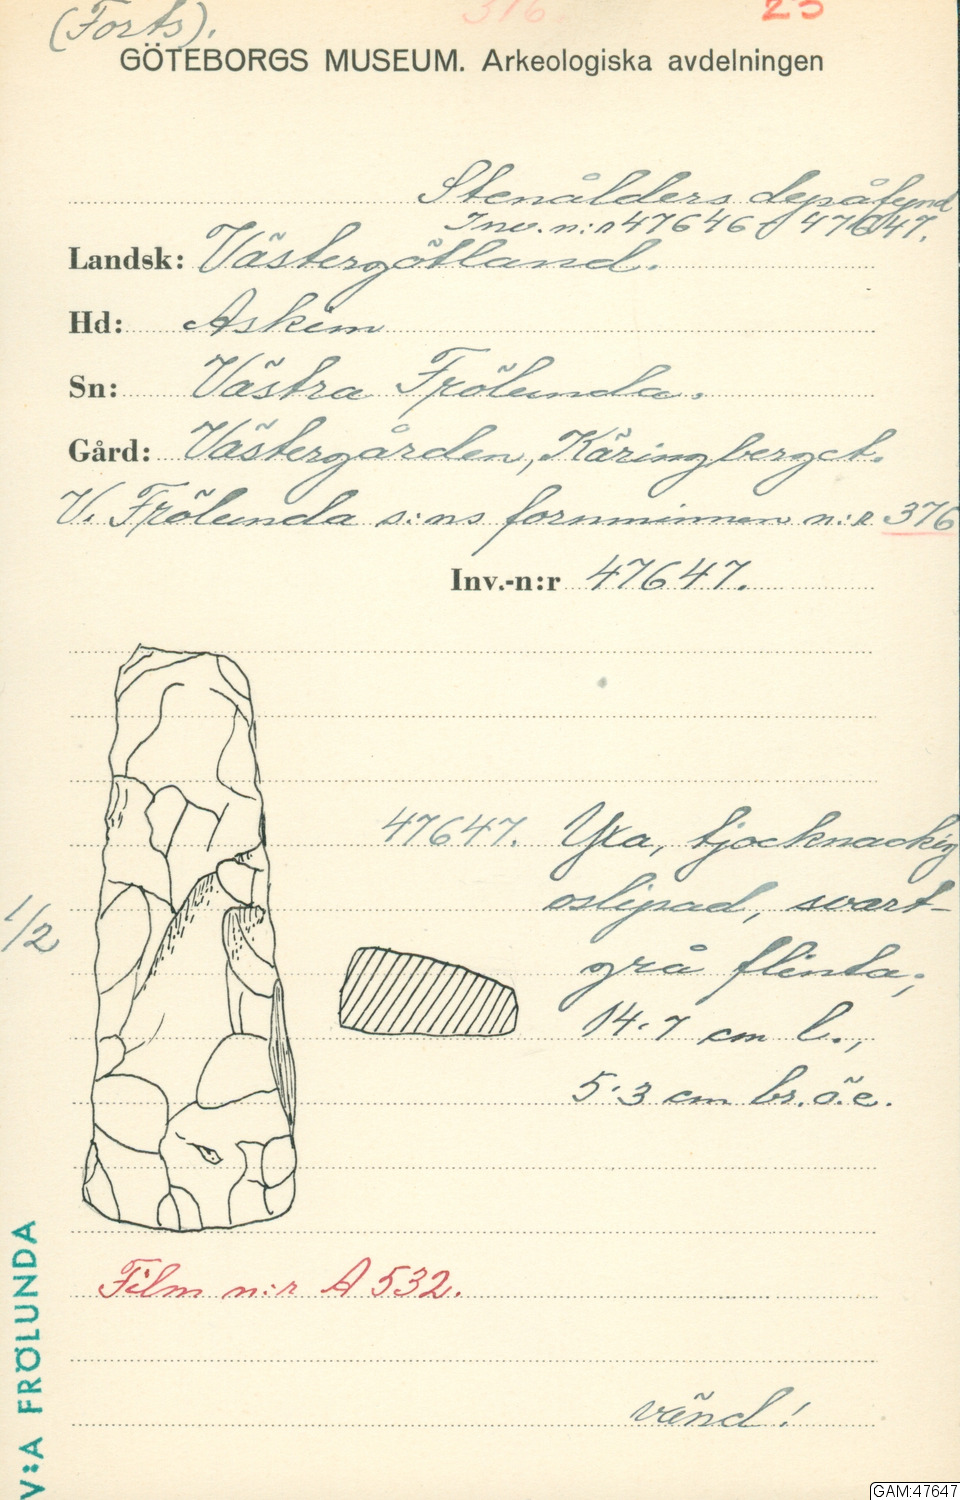 (Forts). 376. 23
GÖTEBORGS MUSEUM. Arkeologiska avdelningen
Stenålders depåfynd
Inv. n:r 47646 - 47647.
Landsk: Västergötland.
Hd: Askim
Sn: Västra Frölunda.
Gård: Västergården, Käringberget.
V. Frölunda s:ns fornminnen n:r 376
Inv.-n:r 47647.
47647. Yxa, tjocknackig
oslipad, svart-
grå flinta;
14.7 cm l.,
5.3 cm br. ö. e.
1/2
Film n:r A 532.
vänd!
V:A FRÖLUNDA
GAM:47647